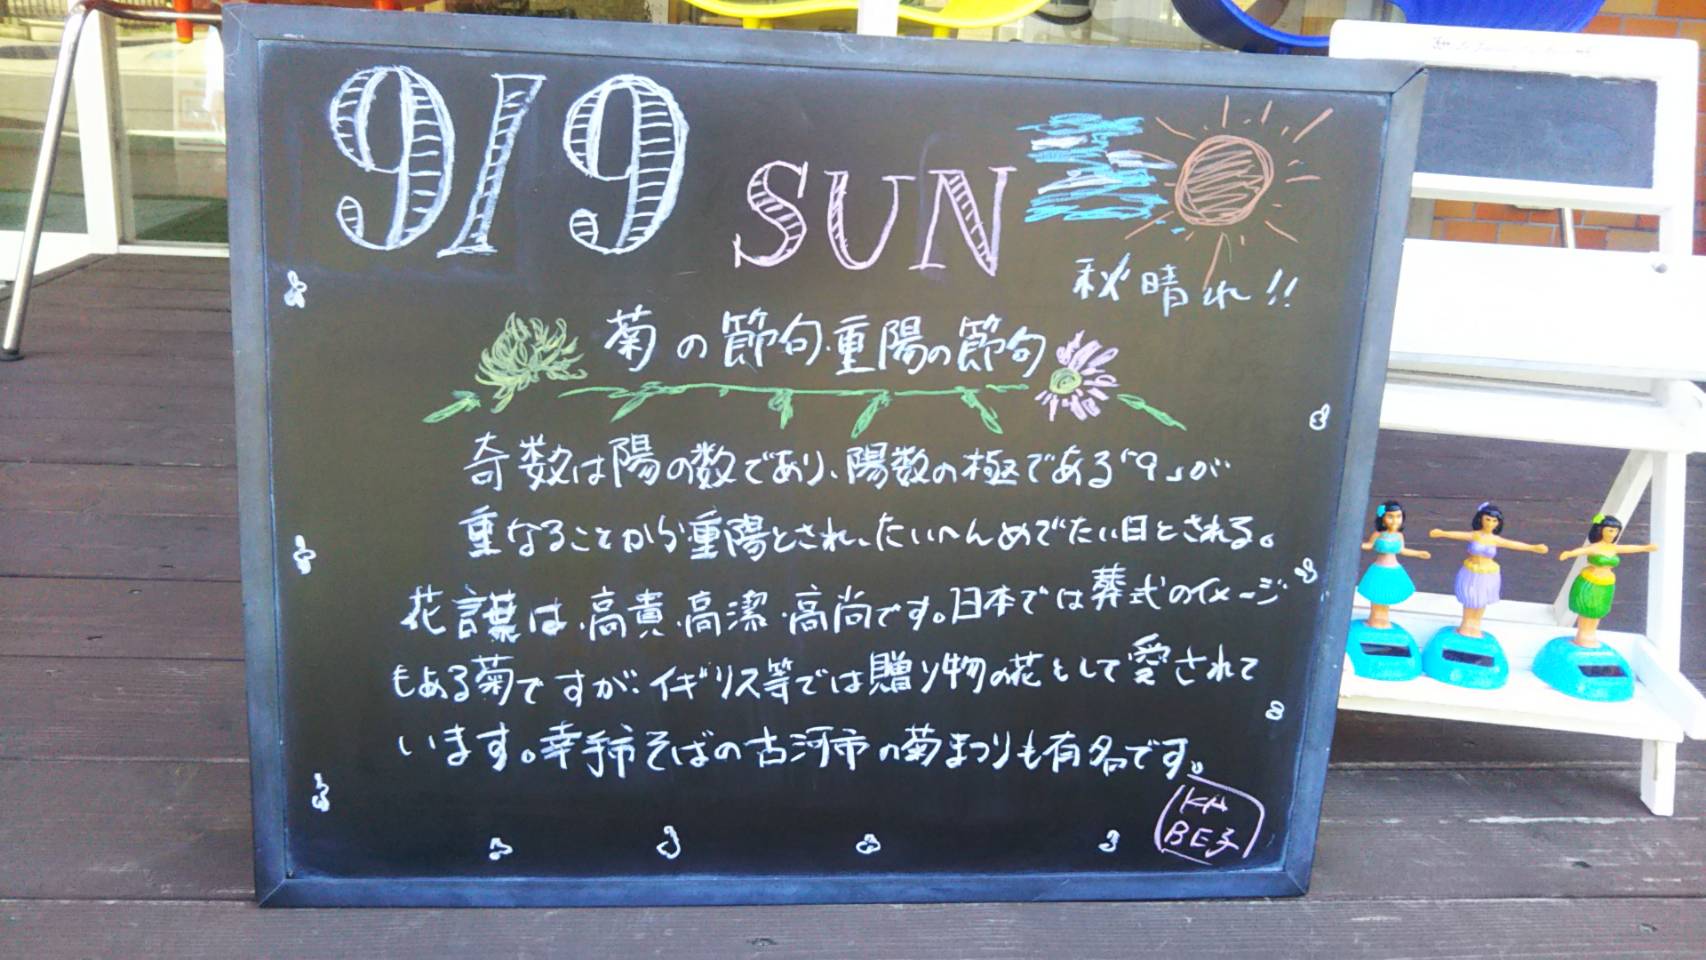 9/9 SUN
秋晴れ!!
菊の節句・重陽の節句
奇数は陽の数であり、陽数の極である「9」が
重なることから重陽とされ、たいへんめでたい日とされる。
花言葉は、高貴・高潔・高尚です。日本では葬式のイメージ
もある菊ですが、イギリス等では贈り物の花として愛されて
います。幸手市そばの古河市の菊まつりも有名です。
KA
BE子